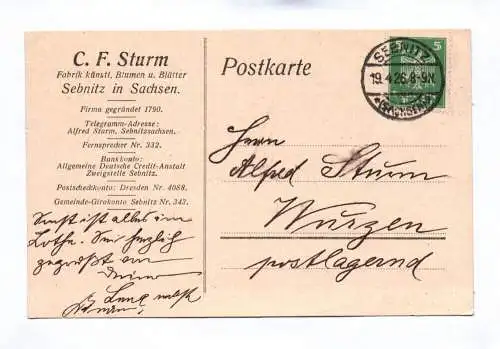 C. F. Sturm
Fabrik künstl. Blumen u. Blätter
Sebnitz in Sachsen.
Firma gegründet 1790.
Telegramm-Adresse:
Alfred Sturm, Sebnitzsachsen.
Fernsprecher Nr. 332.
Bankkonto:
Allgemeine Deutsche Credit-Anstalt
Zweigstelle Sebnitz.
Postscheckkonto: Dresden Nr. 4088.
Gemeinde-Girokonto Sebnitz Nr. 343.
Sonst ist alles im
Lothe. Sei herzlich
gegrüßt von
Postkarte
SEBNITZ
19.4.26.8-9N.
(SACHSEN)
5
Herrn
Alfred Sturm
Wurzen
postlagernd